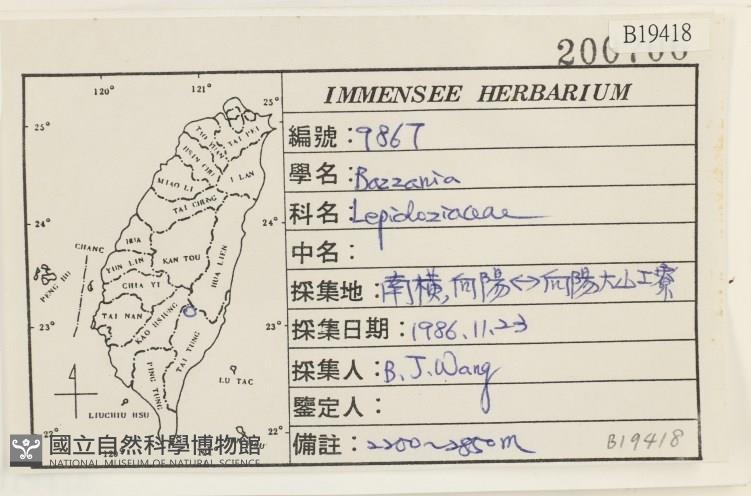 B19418
IMMENSEE HERBARIUM
編號：9867
學名：Bazzania
科名：Lepidoziaceae
中名：
採集地：南橫，向陽<->向陽大山工寮
採集日期：1986.11.23
採集人：B.J.Wang
鑒定人：
備註：2200~2850m
B19418
120°
121°
25°
25°
TAO YUAN
TAI PEI
HSIN CHU
I LAN
MIAO LI
TAI CHUNG
24°
24°
CHANG
HUA
YUN LIN
KAN TOU
HUA LIEN
PENG HU
CHIA YI
TAI NAN
KAO HSIUNG
23°
23°
TAI TUNG
PING TUNG
LU TAC
LIUCHIU HSU
22°
22°
120°
121°
國立自然科學博物館
NATIONAL MUSEUM OF NATURAL SCIENCE